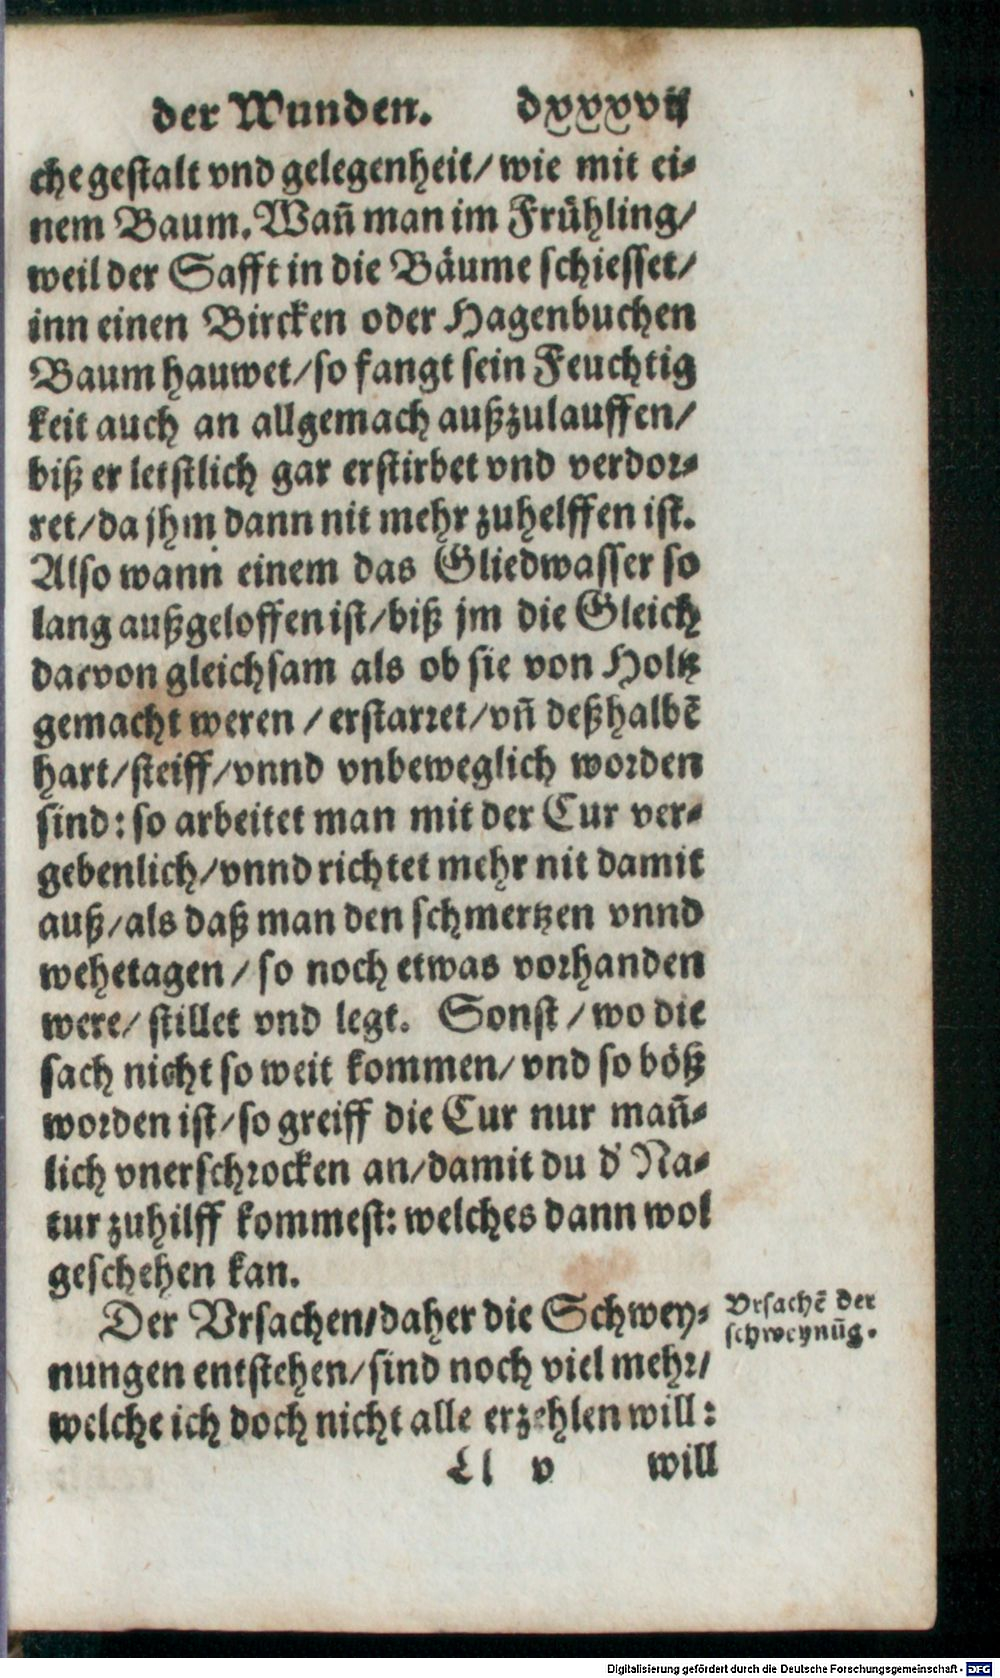 der Wunden. dxxxvij
che gestalt vnd gelegenheit/ wie mit ei-
nem Baum. Wañ man im Frühling/
weil der Safft in die Bäume schiesset/
inn einen Bircken oder Hagenbuchen
Baum hauwet/ so fangt sein Feuchtig
keit auch an allgemach außzulauffen/
biß er letstlich gar erstirbet vnd verdor-
ret/ da jhm dann nit mehr zuhelffen ist.
Also wann einem das Gliedwasser so
lang außgeloffen ist/ biß jm die Gleich
darvon gleichsam als ob sie von Holtz
gemacht weren / erstarret/ vñ deßhalbẽ
hart/ steiff/ vnnd vnbeweglich worden
sind: so arbeitet man mit der Cur ver-
gebenlich/ vnnd richtet mehr nit damit
auß/ als daß man den schmertzen vnnd
wehetagen/ so noch etwas vorhanden
were/ stillet vnd legt. Sonst / wo die
sach nicht so weit kommen/ vnd so böß
worden ist/ so greiff die Cur nur mañ-
lich vnerschrocken an/ damit du d' Na-
tur zuhilff kommest: welches dann wol
geschehen kan.
Der Vrsachen/ daher die Schwey-
nungen entstehen/ sind noch viel mehr/
welche ich doch nicht alle erzehlen will:
Vrsachẽ der
schweynũg.
Ll v will
Digitalisierung gefördert durch die Deutsche Forschungsgemeinschaft - DFG